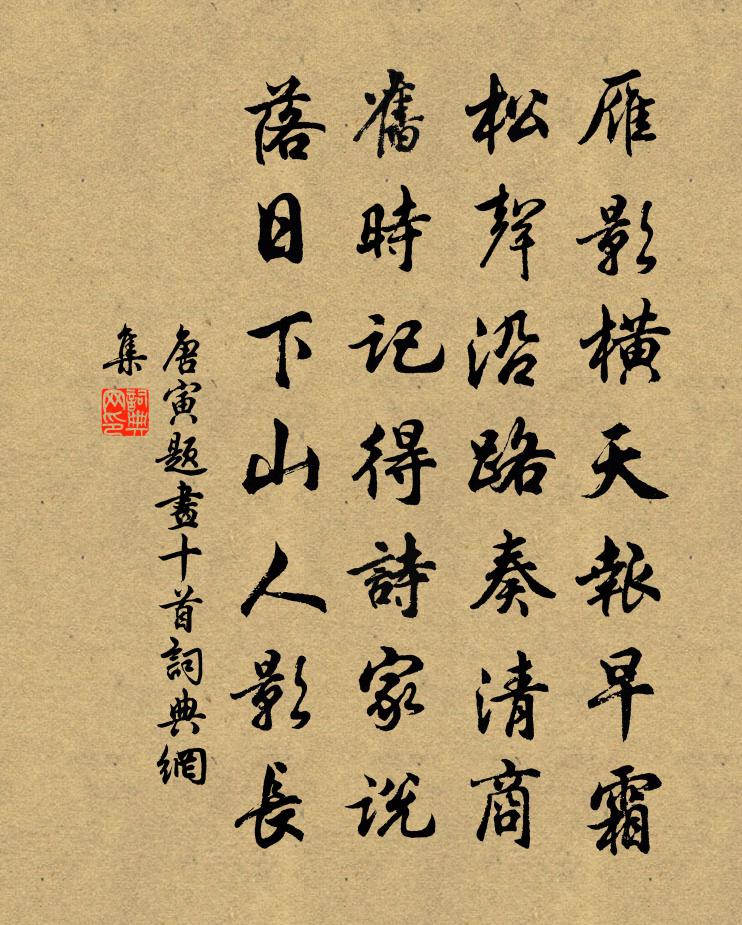 雁影橫天報早霜
松聲沿路奏清商
舊時記得詩家說
落日下山人影長
唐寅題畫十首詞典網
集
詞典
网印